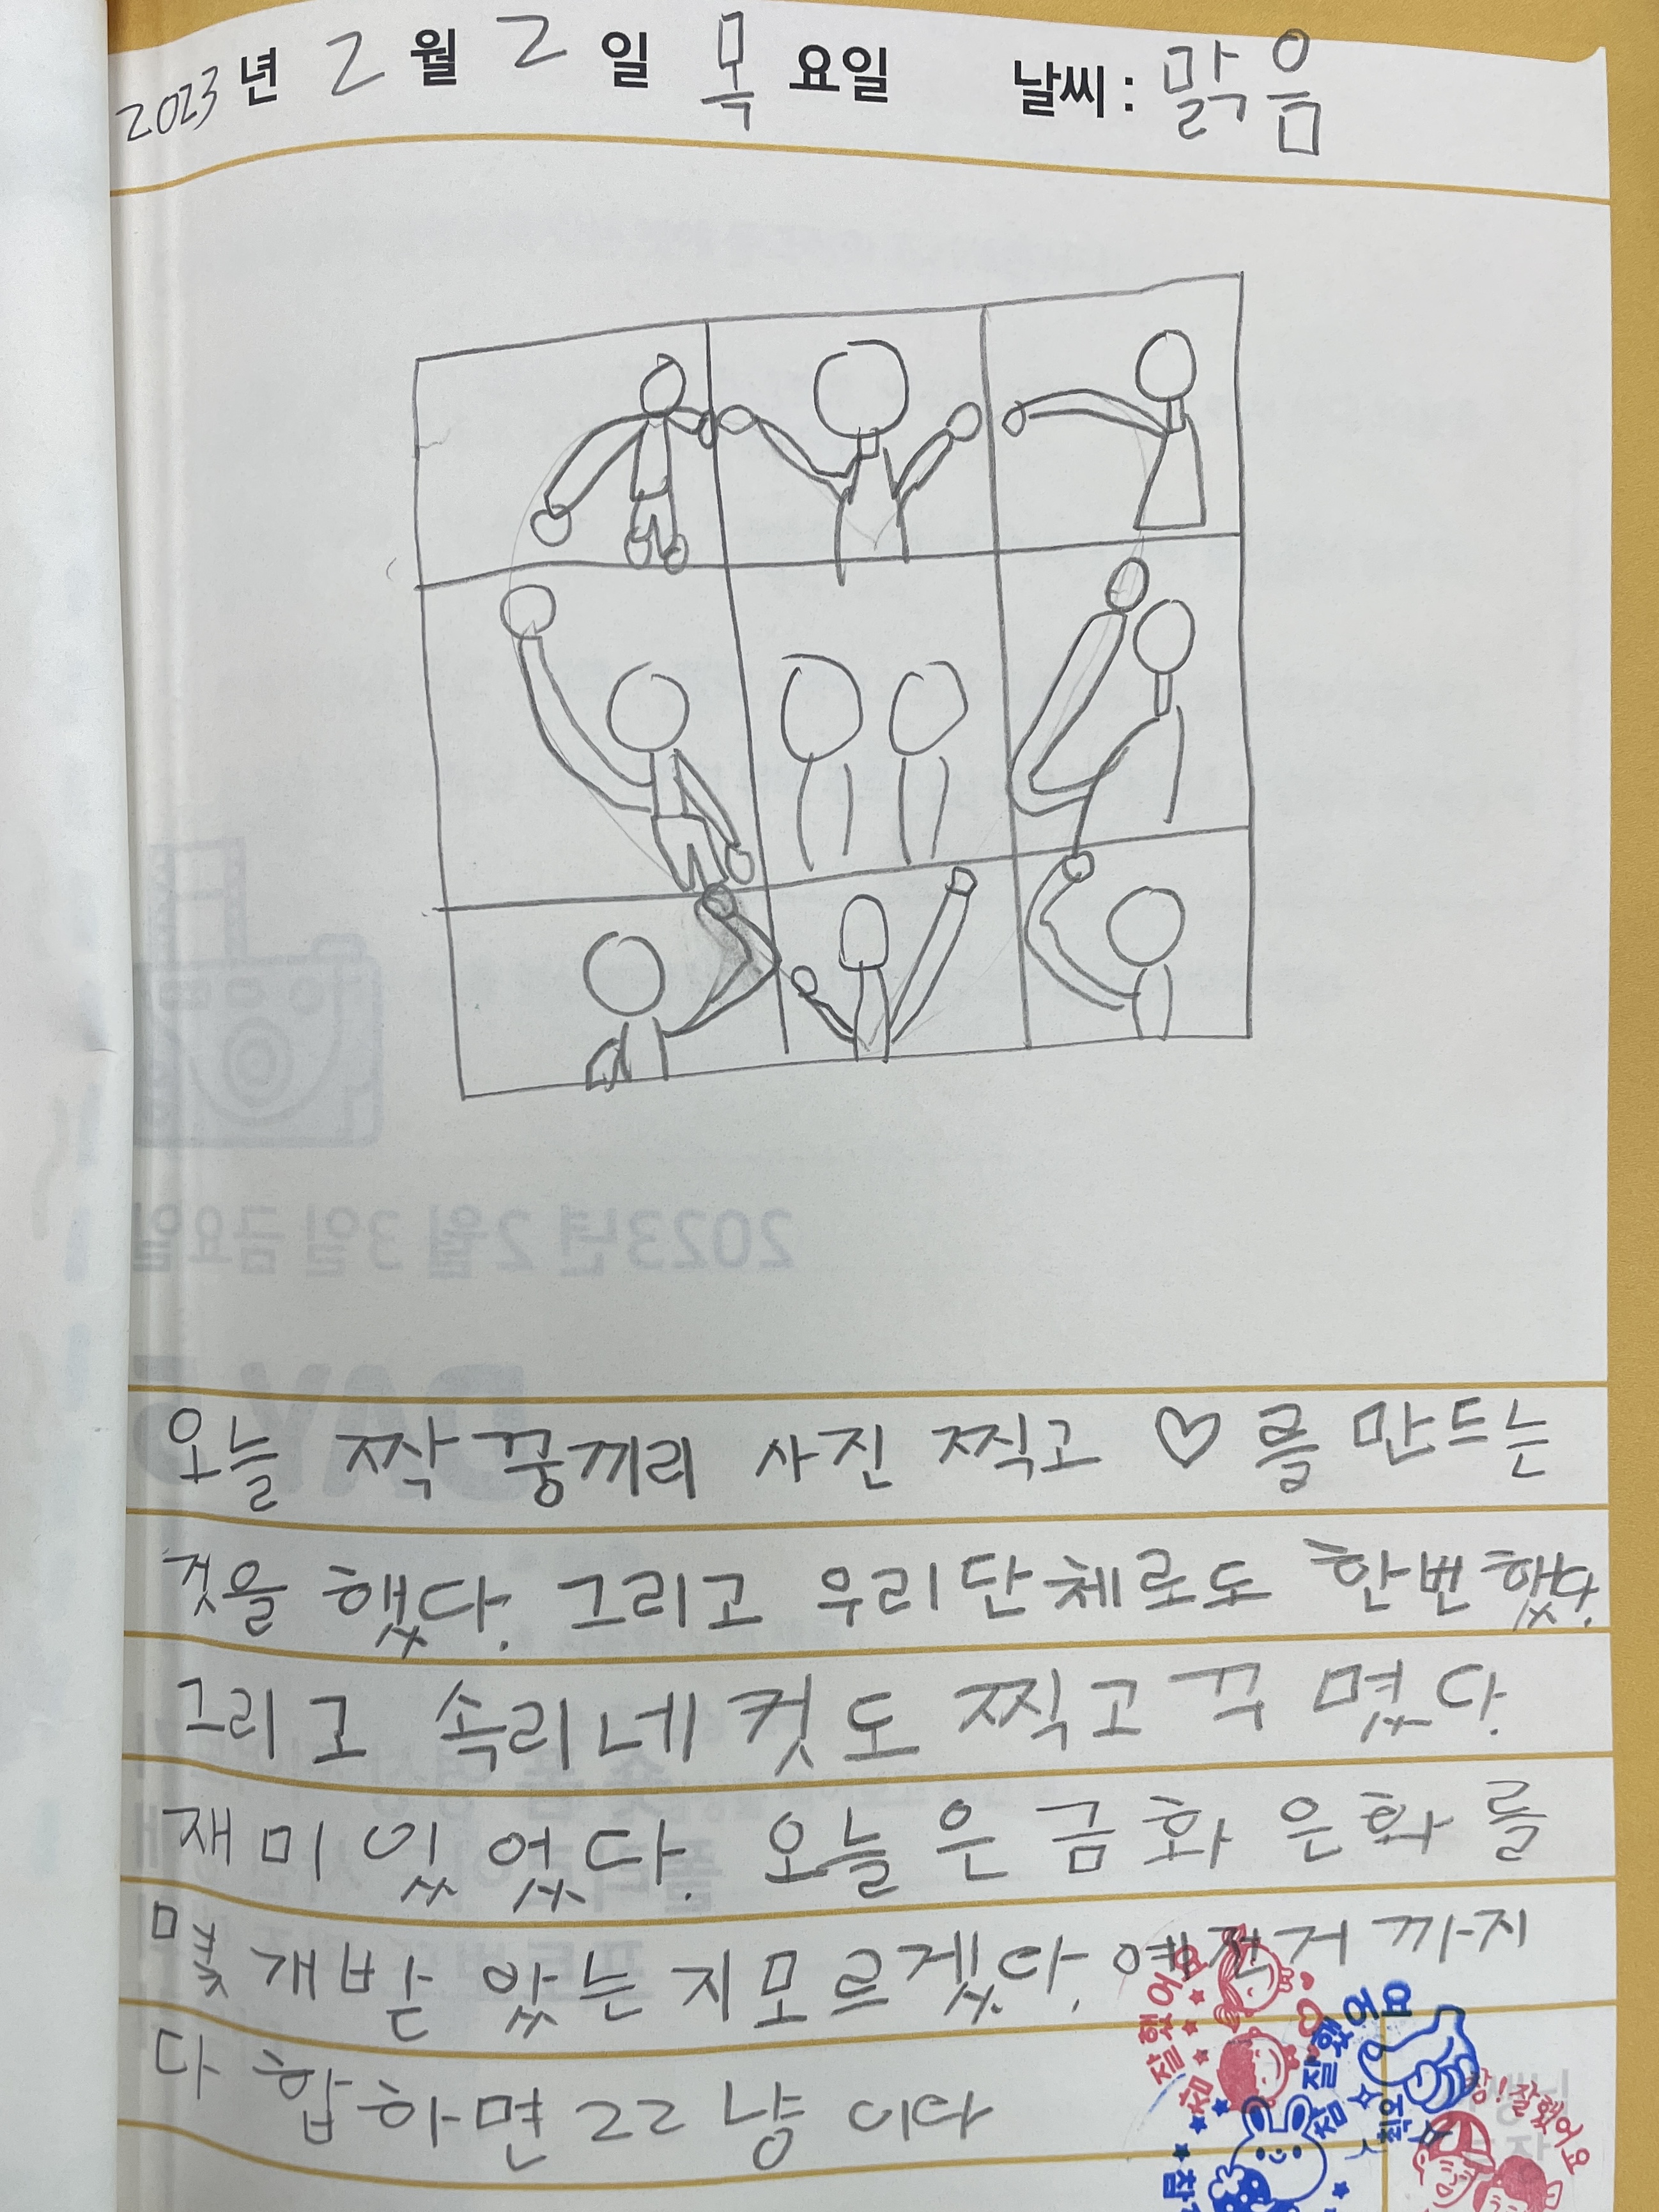 2023년 2월 2일 목요일 날씨: 맑음
2023년 2월 3일 금요일
DAY 5
오늘 짝꿍끼리 사진 찍고 ♡를 만드는
것을 했다. 그리고 우리단체로도 한번했다.
그리고 속리네컷도 찍고 꾸몄다.
재미있었다. 오늘은 금화 은화를
몇개받았는지모르겠다. 예전거까지
다 합하면 22냥이다
참 잘했어요
참 잘했어요
최고